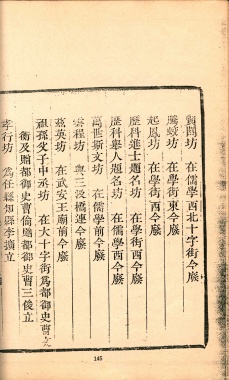 賓興坊　在儒學西北十字街今廢
騰蛟坊　在學街東今廢
起鳳坊　在學街西今廢
歷科進士題名坊　在學街西今廢
歷科舉人題名坊　在儒學西今廢
萬世斯文坊　在儒學前今廢
雲程坊　與三汲橋連今廢
英坊　在武安王廟前今廢
祖孫父子中丞坊　在大十字街為都御史曹
衡及贈都御史曹倫贈都御史曹三俊立
孝行坊　為任縣知縣李擴立
145